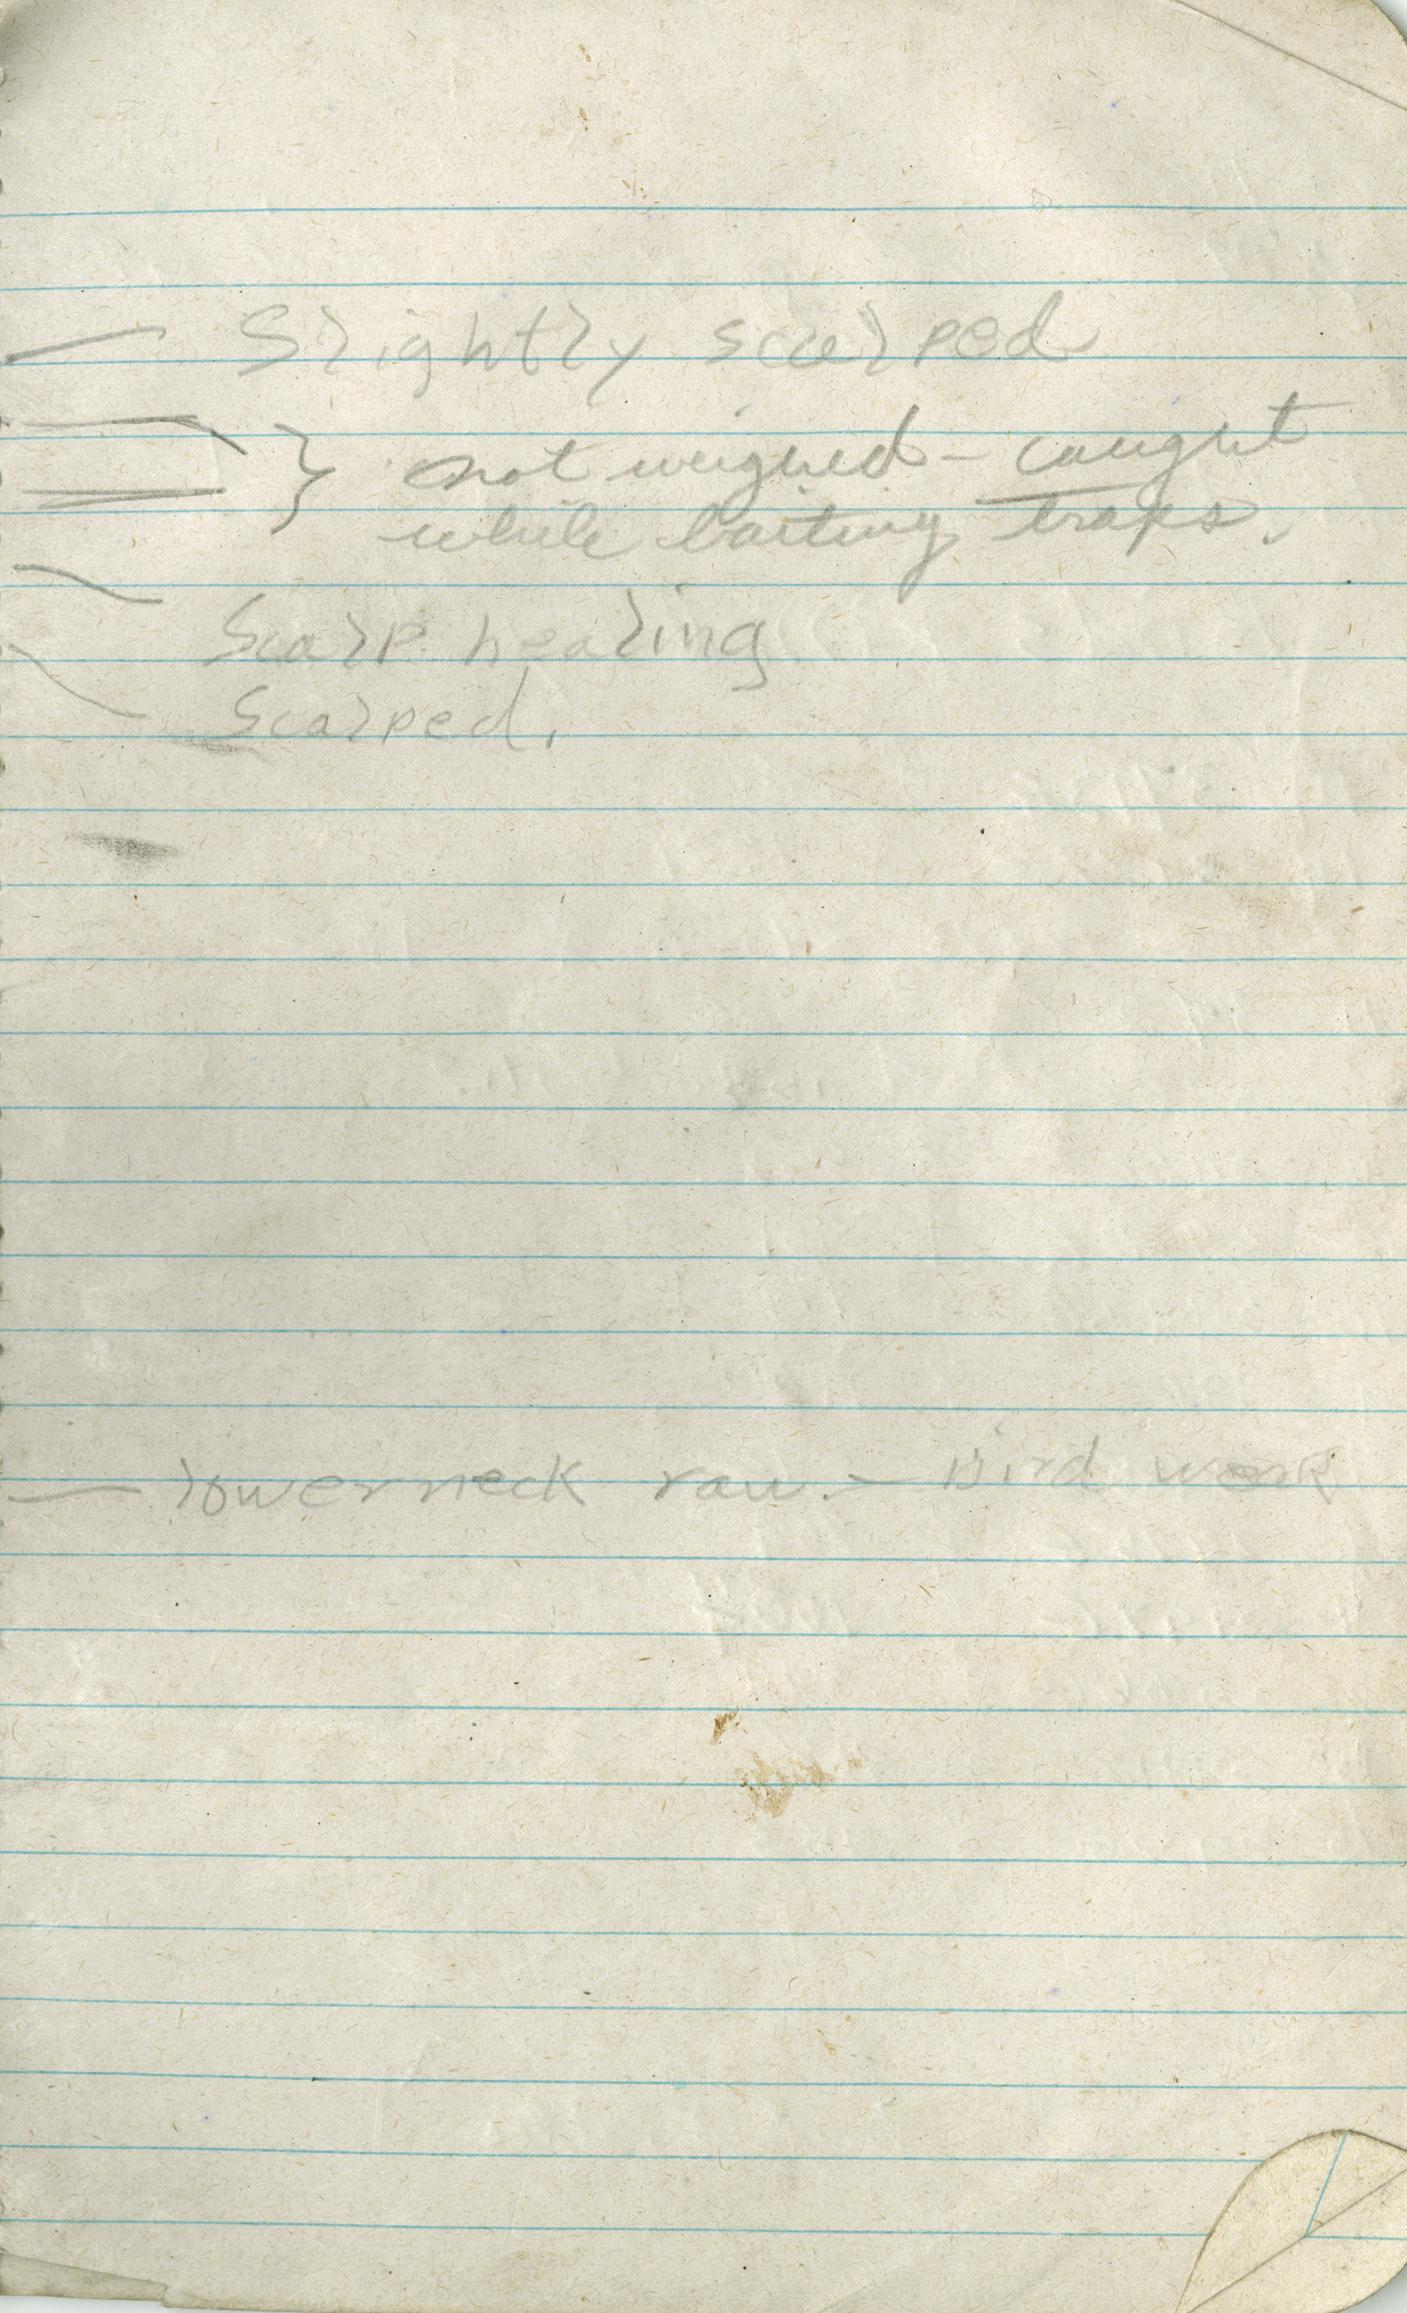 — Slightly scalped
} not weighed - caught
while baiting traps.
Scalp healing
Scalped.
— lower neck raw. - Bird weak